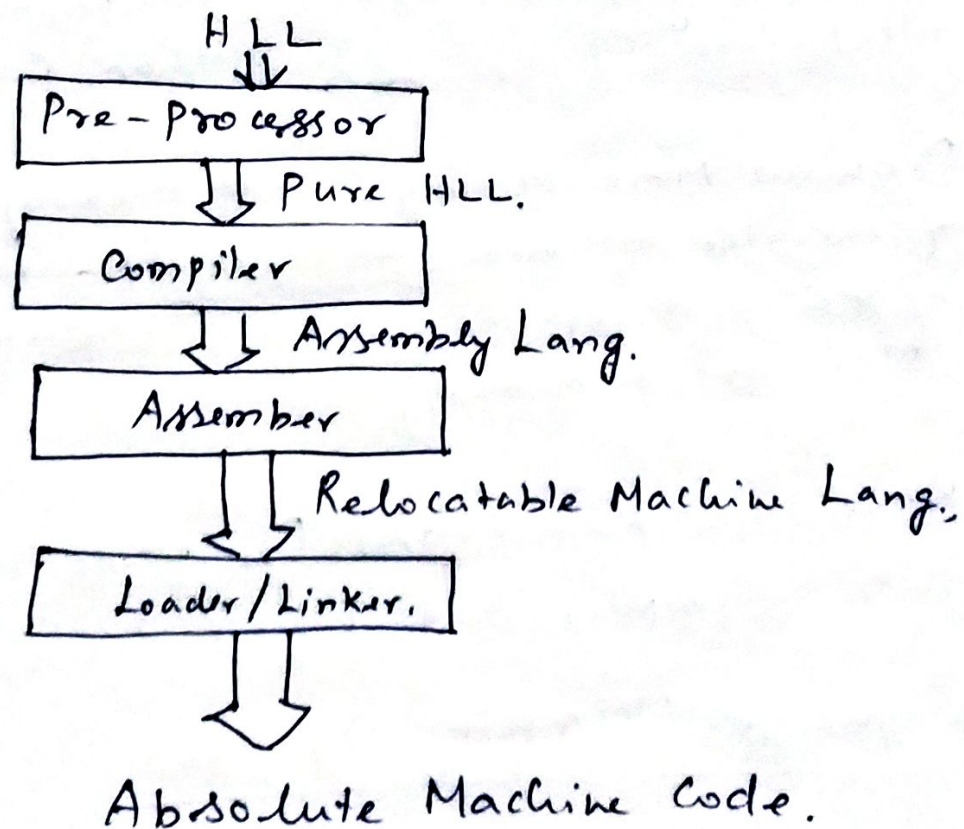 HLL
Pre-Processor
Pure HLL.
Compiler
Assembly Lang.
Assember
Relocatable Machine Lang.,
Loader/Linker.
Absolute Machine Code.